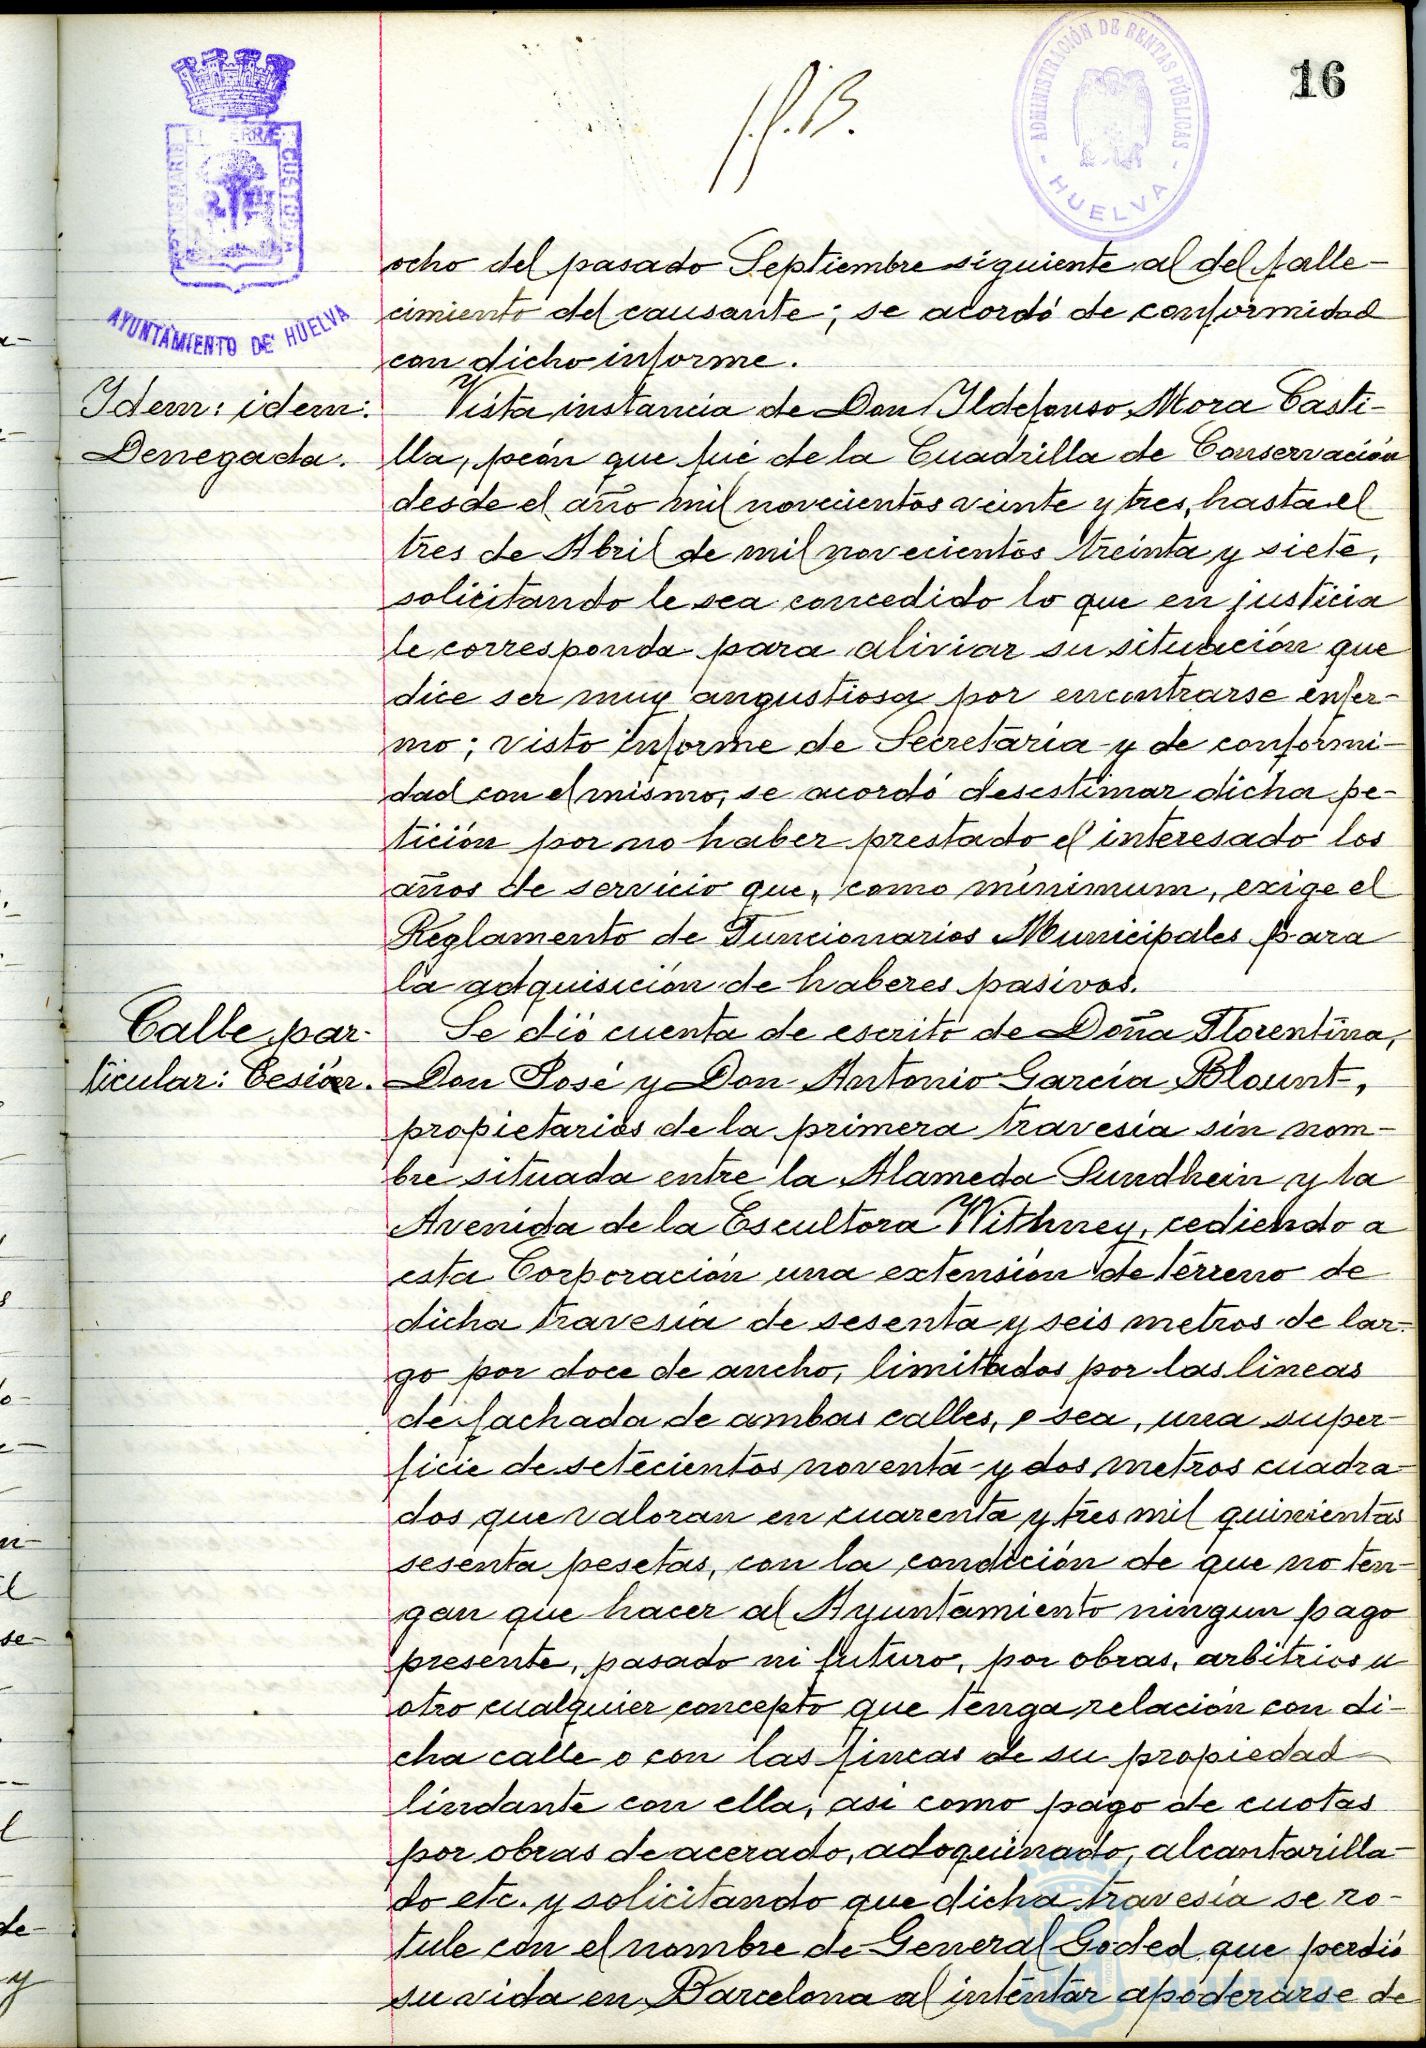 16
ADMINISTRACIÓN DE RENTAS PÚBLICAS
HUELVA
AYUNTAMIENTO DE HUELVA
ocho del pasado Septiembre siguiente al del falle-
cimiento del causante; se acordó de conformidad
con dicho informe.
Idem: idem:
Denegada.
Vista instancia de Don Ildefonso Mora Casti-
lla, peón que fué de la Cuadrilla de Conservación
desde el año mil novecientos veinte y tres, hasta el
tres de Abril de mil novecientos treinta y siete,
solicitando le sea concedido lo que en justicia
le corresponda para aliviar su situación que
dice ser muy angustiosa por encontrarse enfer-
mo; visto informe de Secretaría y de conformi-
dad con el mismo, se acordó desestimar dicha pe-
tición por no haber prestado el interesado los
años de servicio que, como mínimum, exige el
Reglamento de Funcionarios Municipales para
la adquisición de haberes pasivos.
Calle par-
ticular: Cesión.
Se dió cuenta de escrito de Doña Florentina,
Don José y Don Antonio García Blount,
propietarios de la primera travesía sin nom-
bre situada entre la Alameda Sundhein y la
Avenida de la Escultora Withney, cediendo a
esta Corporación una extensión de terreno de
dicha travesía de sesenta y seis metros de lar-
go por doce de ancho, limitados por las líneas
de fachada de ambas calles, o sea, una super-
ficie de setecientos noventa y dos metros cuadra-
dos que valoran en cuarenta y tres mil quinientas
sesenta pesetas, con la condición de que no ten-
gan que hacer al Ayuntamiento ningun pago
presente, pasado ni futuro, por obras, arbitrios u
otro cualquier concepto que tenga relación con di-
cha calle o con las fincas de su propiedad
lindante con ella, asi como pago de cuotas
por obras de acerado, adoquinado, alcantarilla-
do etc. y solicitando que dicha travesía se ro-
tule con el nombre de General Goded que perdió
su vida en Barcelona al intentar apoderarse de
Ayuntamiento de
HUELVA